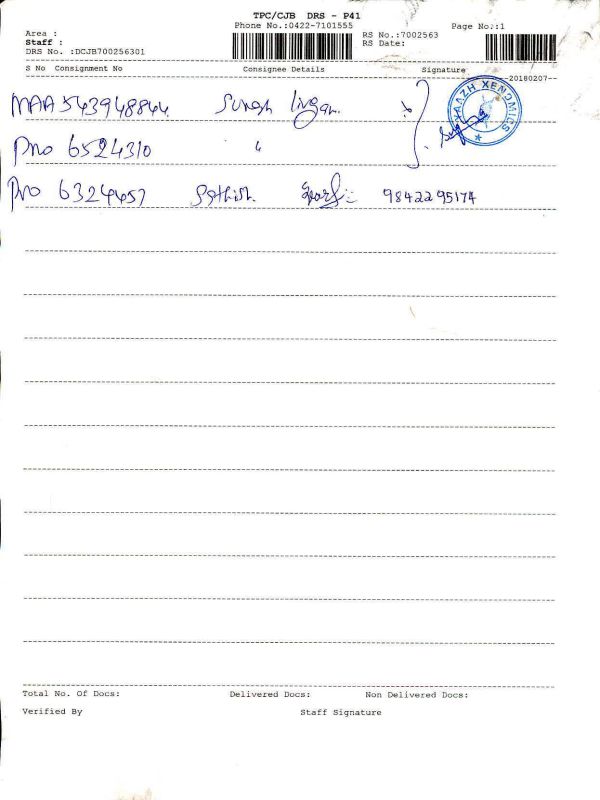 TPC/CJB DRS - P41
Phone No.:0422-7101555
Page No.:1
Area :
Staff :
DRS No. :DCJB700256301
RS No.:7002563
RS Date:
S No Consignment No Consignee Details Signature
20180207
MAA 543948844
Pno 6524310 "
Pno 6324457 Sathish 9842295174
Total No. Of Docs: Delivered Docs: Non Delivered Docs:
Verified By Staff Signature